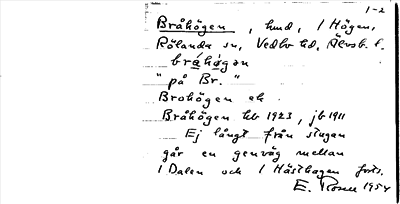 1-2
Bråhögen, hmd, / Högen,
Rölanda sn, Vedbo hd, Älvsb. l.
bråhøgən
"på Br."
Brohögen ek
Bråhögen hb 1923, jb 1911
Ej långt från stugan
går en genväg mellan
/ Dalen och / Hästhagen forts.
E. Rosen 1954